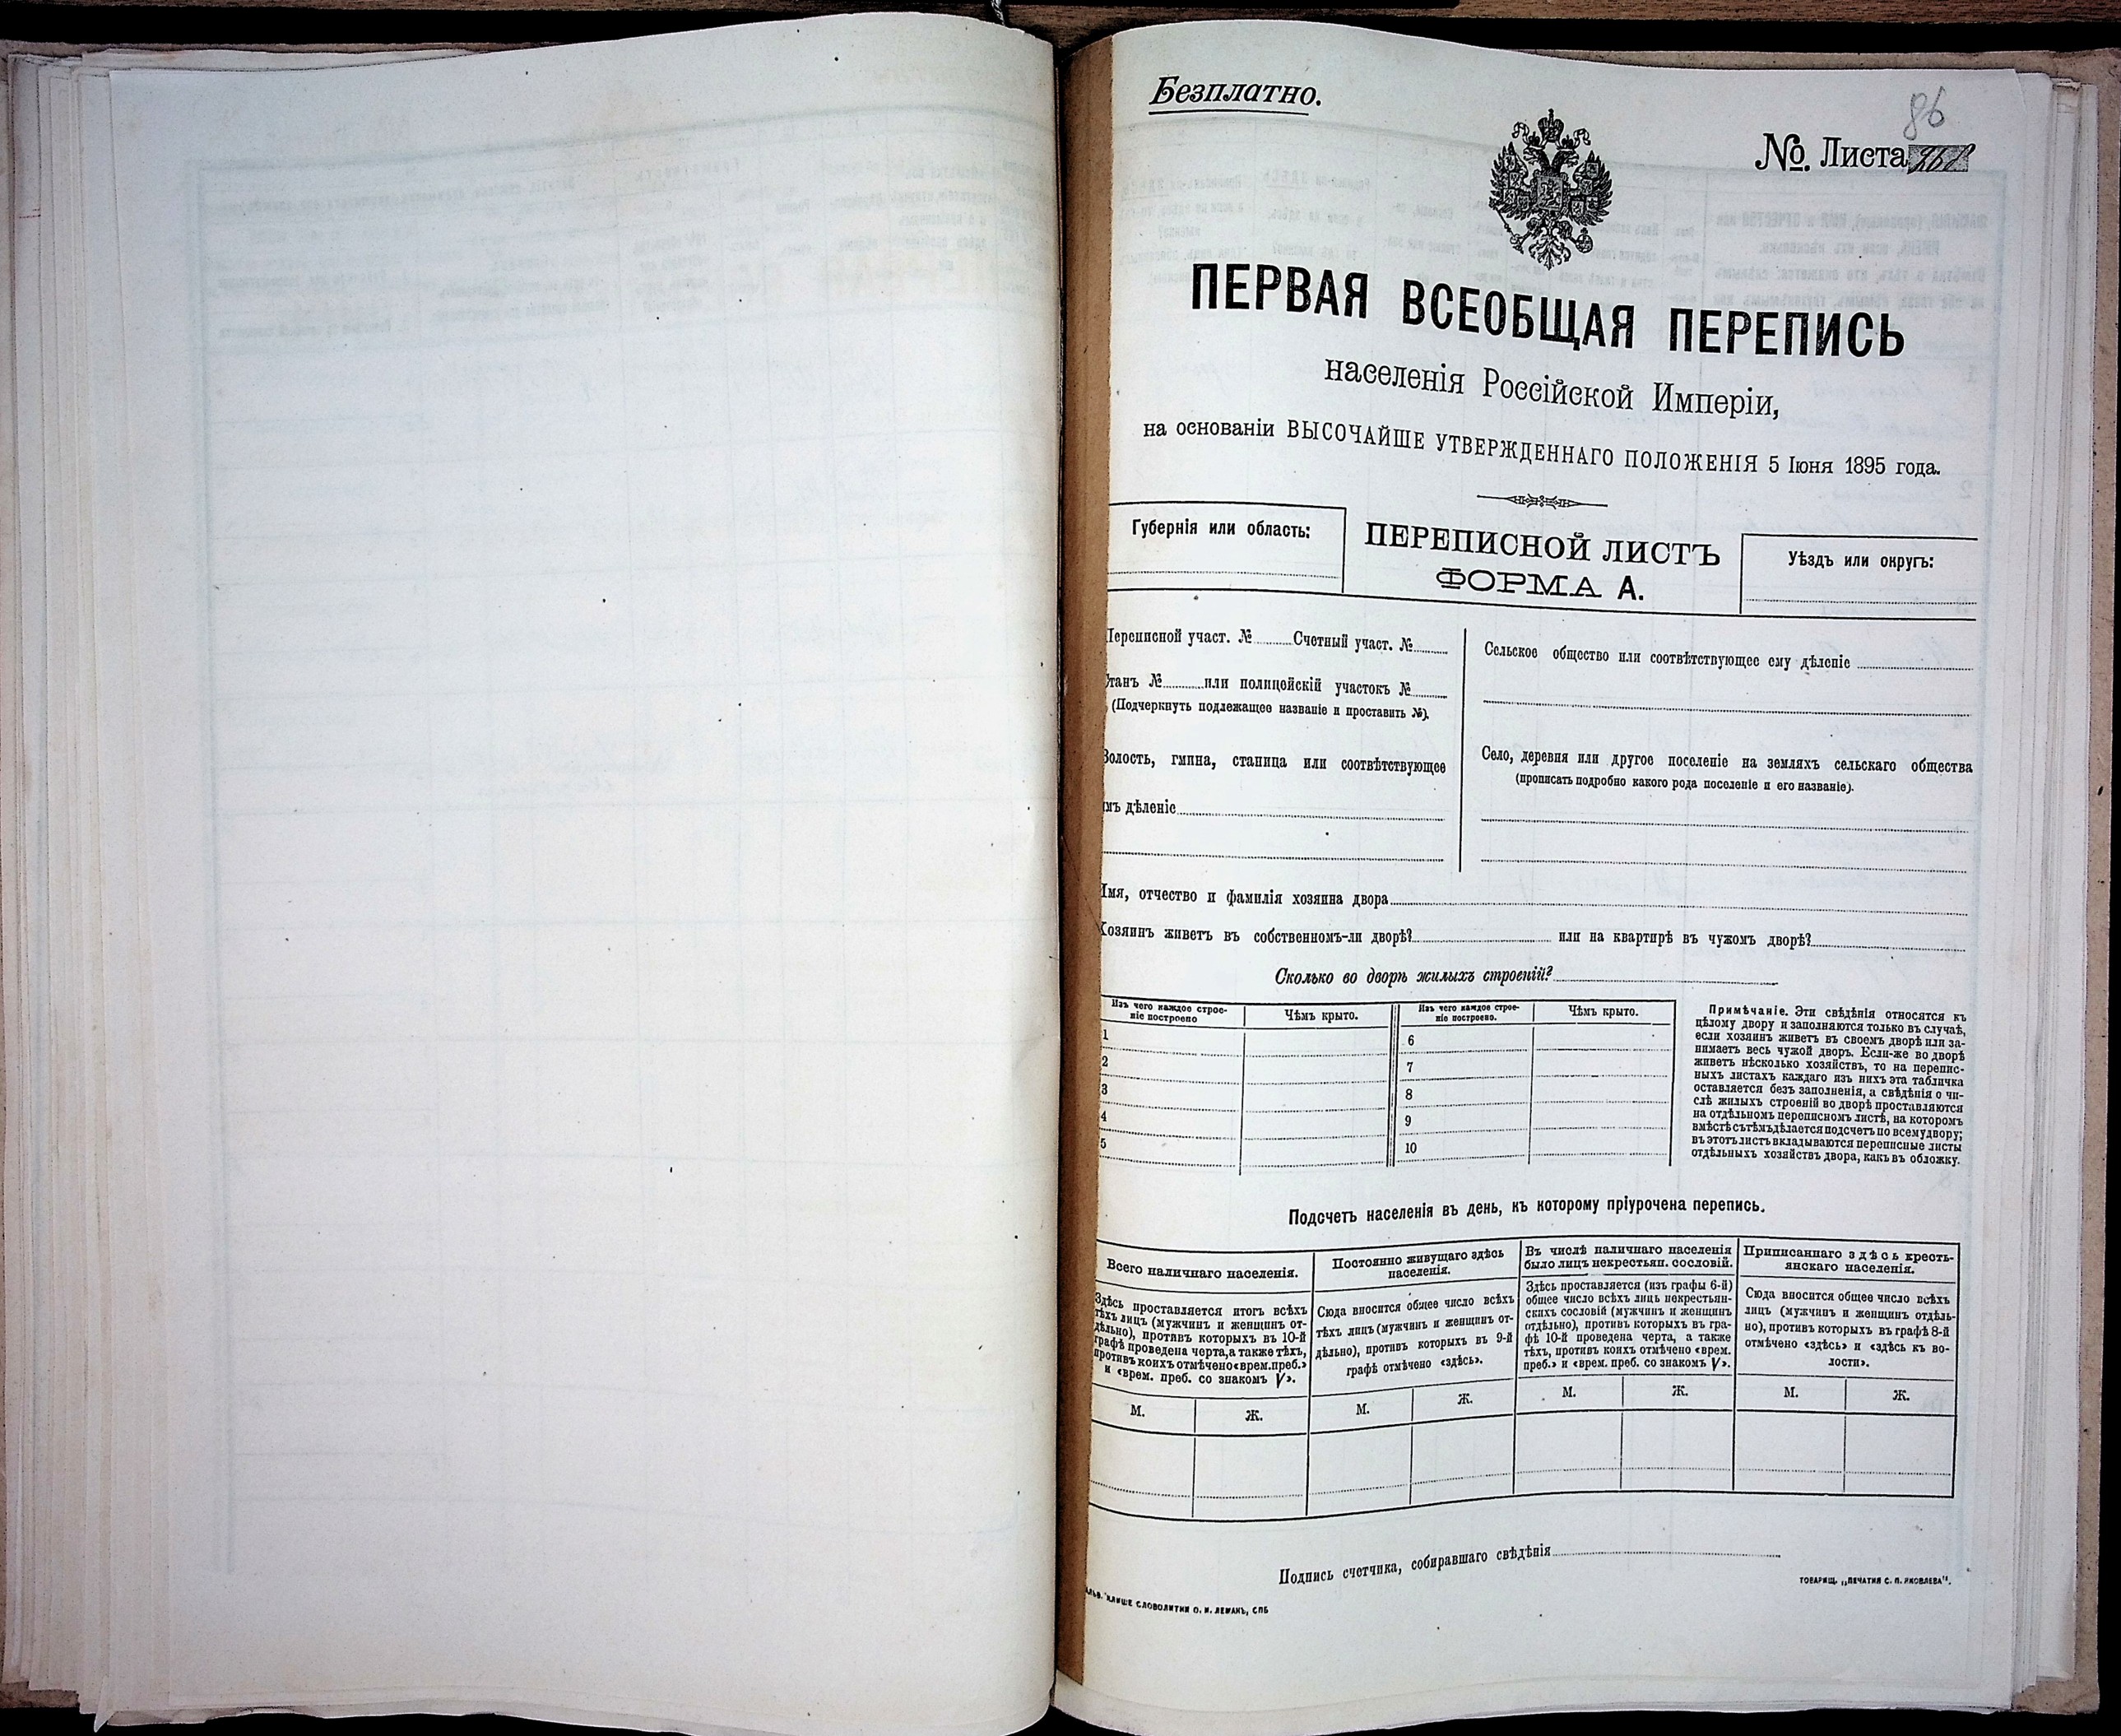 Безплатно.
86
№. Листа 268
ПЕРВАЯ ВСЕОБЩАЯ ПЕРЕПИСЬ
населенія Россійской Имперіи,
на основаніи ВЫСОЧАЙШЕ УТВЕРЖДЕННАГО ПОЛОЖЕНІЯ 5 Іюня 1895 года.
Губернія или область:
ПЕРЕПИСНОЙ ЛИСТЪ
ФОРМА А.
Уѣздъ или округъ:
Переписной участ. № Счетный участ. №
Станъ № или полицейскій участокъ №
(Подчеркнуть подлежащее названіе и проставить №).
Волость, гмина, станица или соотвѣтствующее
имъ дѣленіе
Сельское общество или соотвѣтствующее ему дѣленіе
Село, деревня или другое поселеніе на земляхъ сельскаго общества
(прописать подробно какого рода поселеніе и его названіе).
Имя, отчество и фамилія хозяина двора
Хозяинъ живетъ въ собственномъ-ли дворѣ? или на квартирѣ въ чужомъ дворѣ?
Сколько во дворѣ жилыхъ строеній?
Изъ чего каждое строе-
ніе построено
Чѣмъ крыто.
Изъ чего каждое строе-
ніе построено.
Чѣмъ крыто.
1
2
3
4
5
6
7
8
9
10
Примѣчаніе. Эти свѣдѣнія относятся къ
цѣлому двору и заполняются только въ случаѣ,
если хозяинъ живетъ въ своемъ дворѣ или за-
нимаетъ весь чужой дворъ. Если-же во дворѣ
живетъ нѣсколько хозяйствъ, то на перепис-
ныхъ листахъ каждаго изъ нихъ эта табличка
оставляется безъ заполненія, а свѣдѣнія о чи-
слѣ жилыхъ строеній во дворѣ проставляются
на отдѣльномъ переписномъ листѣ, на которомъ
вмѣстѣ съ тѣмъ дѣлается подсчетъ по всему двору;
въ этотъ листъ вкладываются переписные листы
отдѣльныхъ хозяйствъ двора, какъ въ обложку.
Подсчетъ населенія въ день, къ которому пріурочена перепись.
Всего наличнаго населенія.
Здѣсь проставляется итогъ всѣхъ
тѣхъ лицъ (мужчинъ и женщинъ от-
дѣльно), противъ которыхъ въ 10-й
графѣ проведена черта, а также тѣхъ,
противъ коихъ отмѣчено «врем. преб.»
и «врем. преб. со знакомъ V».
М.
Ж.
Постоянно живущаго здѣсь
населенія.
Сюда вносится общее число всѣхъ
тѣхъ лицъ (мужчинъ и женщинъ от-
дѣльно), противъ которыхъ въ 9-й
графѣ отмѣчено «здѣсь».
М.
Ж.
Въ числѣ наличнаго населенія
было лицъ некрестьян. сословій.
Здѣсь проставляется (изъ графы 6-й)
общее число всѣхъ лицъ некрестьян-
скихъ сословій (мужчинъ и женщинъ
отдѣльно), противъ которыхъ въ гра-
фѣ 10-й проведена черта, а также
тѣхъ, противъ коихъ отмѣчено «врем.
преб.» и «врем. преб. со знакомъ V».
М.
Ж.
Приписаннаго здѣсь кресть-
янскаго населенія.
Сюда вносится общее число всѣхъ
лицъ (мужчинъ и женщинъ отдѣль-
но), противъ которыхъ въ графѣ 8-й
отмѣчено «здѣсь» и «здѣсь къ во-
лости».
М.
Ж.
Подпись счетчика, собиравшаго свѣдѣнія
КЛИШЕ СЛОВОЛИТНИ О. И. ЛЕМАНЪ, СПБ
ТОВАРИЩ. „ПЕЧАТНЯ С. П. ЯКОВЛЕВА“.